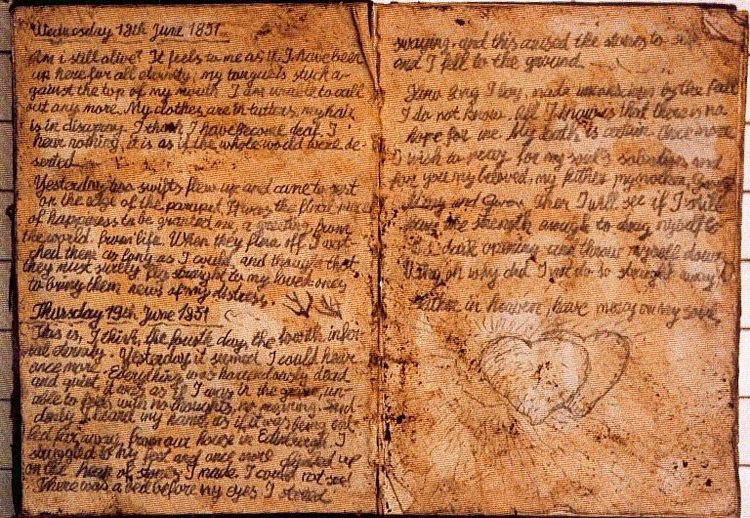 Wednesday 18th June 1851
Am i still alive? It feels to me as if I have been
up here for all eternity; my tongue is stuck a-
gainst the top of my mouth. I am unable to call
out any more. My clothes are in tatters, my hair
is in disarray. I think I have become deaf. I
hear nothing, it is as if the whole world were de-
serted.
Yesterday two swifts flew up and came to rest
on the edge of the parapet. It was the final
of happiness to be granted me, a greeting from
the world, from life. When they flew off I wat-
ched them as long as I could, and thought that
they must surely fly straight to my loved ones
to bring them news of my distress.
Thursday 19th June 1851
This is, I think, the fourth day, the fourth infer-
nal eternity. Yesterday it seemed I could hear
once more. Everything was horrendously dead
and quiet, it was as if I was in the grave, un-
able to with no thoughts, no meaning. Sud-
denly I heard my name, as if it was being cal-
led far away, from our house in Edinburgh. I
struggled to my feet and once more up
on the heap of stones I made. I could not see!
There was a red before my eyes, I stood
swaying, and this caused the stones to
and I fell to the ground.
How long I lay, made unconscious by the fall
I do not know. All I know is that there is no
hope for me. My death is certain. Once more
I wish to pray for my soul's salvation, and
for you my beloved, my father, my mother,
Mary and Gwen. Then I will see if I still
have the strength enough to drag myself to
dark opening and throw myself down.
Why oh why did I not do so straight away?
Father in heaven, have mercy on my soul.